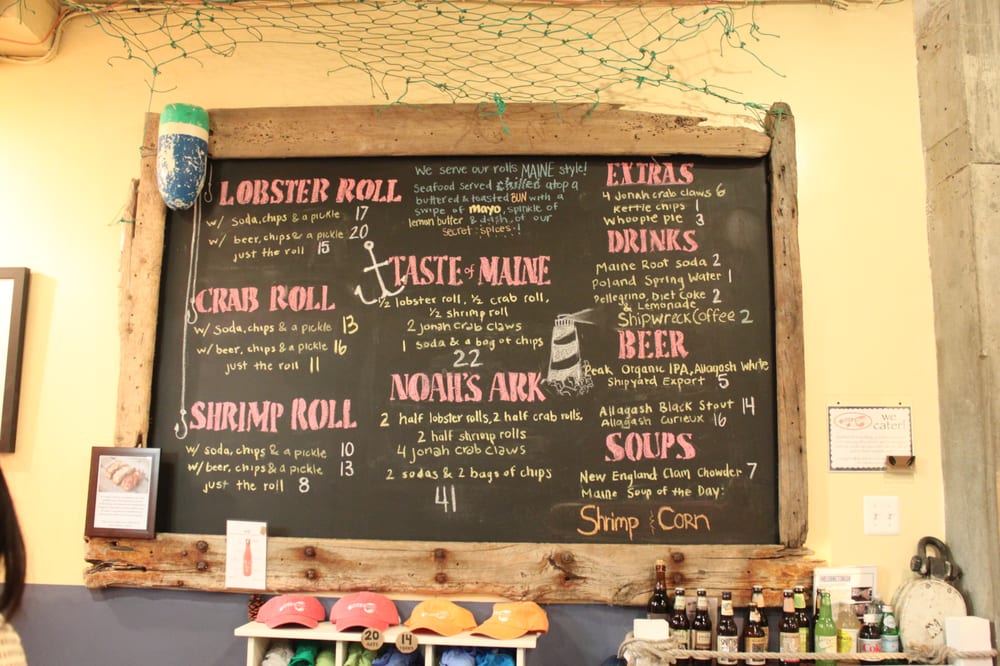 LOBSTER ROLL
w/ Soda, chips & a pickle 17
w/ beer, chips & a pickle 20
just the roll 15
CRAB ROLL
w/ Soda, chips & a pickle 13
w/ beer, chips & a pickle 16
just the roll 11
SHRIMP ROLL
w/ soda, chips & a pickle 10
w/ beer, chips & a pickle 13
just the roll 8
We serve our rolls MAINE style!
Seafood served chilled atop a
buttered & toasted BUN with a
swipe of mayo, spinkle of
lemon butter & dash of our
secret spices!
TASTE of MAINE
½ lobster roll, ½ crab roll,
½ shrimp roll
2 Jonah crab claws
1 soda & a bag of chips
22
NOAH'S ARK
2 half lobster rolls, 2 half crab rolls,
2 half shrimp rolls
4 jonah crab claws
2 sodas & 2 bags of chips
41
EXTRAS
4 Jonah crab claws 6
Kettle chips 1
Whoopie pie 3
DRINKS
Maine Root soda 2
Poland Spring Water 1
Pellegrino, Diet Coke 2
& Lemonade
Shipwreck Coffee 2
BEER
Peak Organic IPA, Allagash White
Shipyard Export 5
Allagash Black Stout 14
Allagash Curieux 16
SOUPS
New England Clam Chowder 7
Maine Soup of the Day:
Shrimp & Corn
we
cater!
20
14